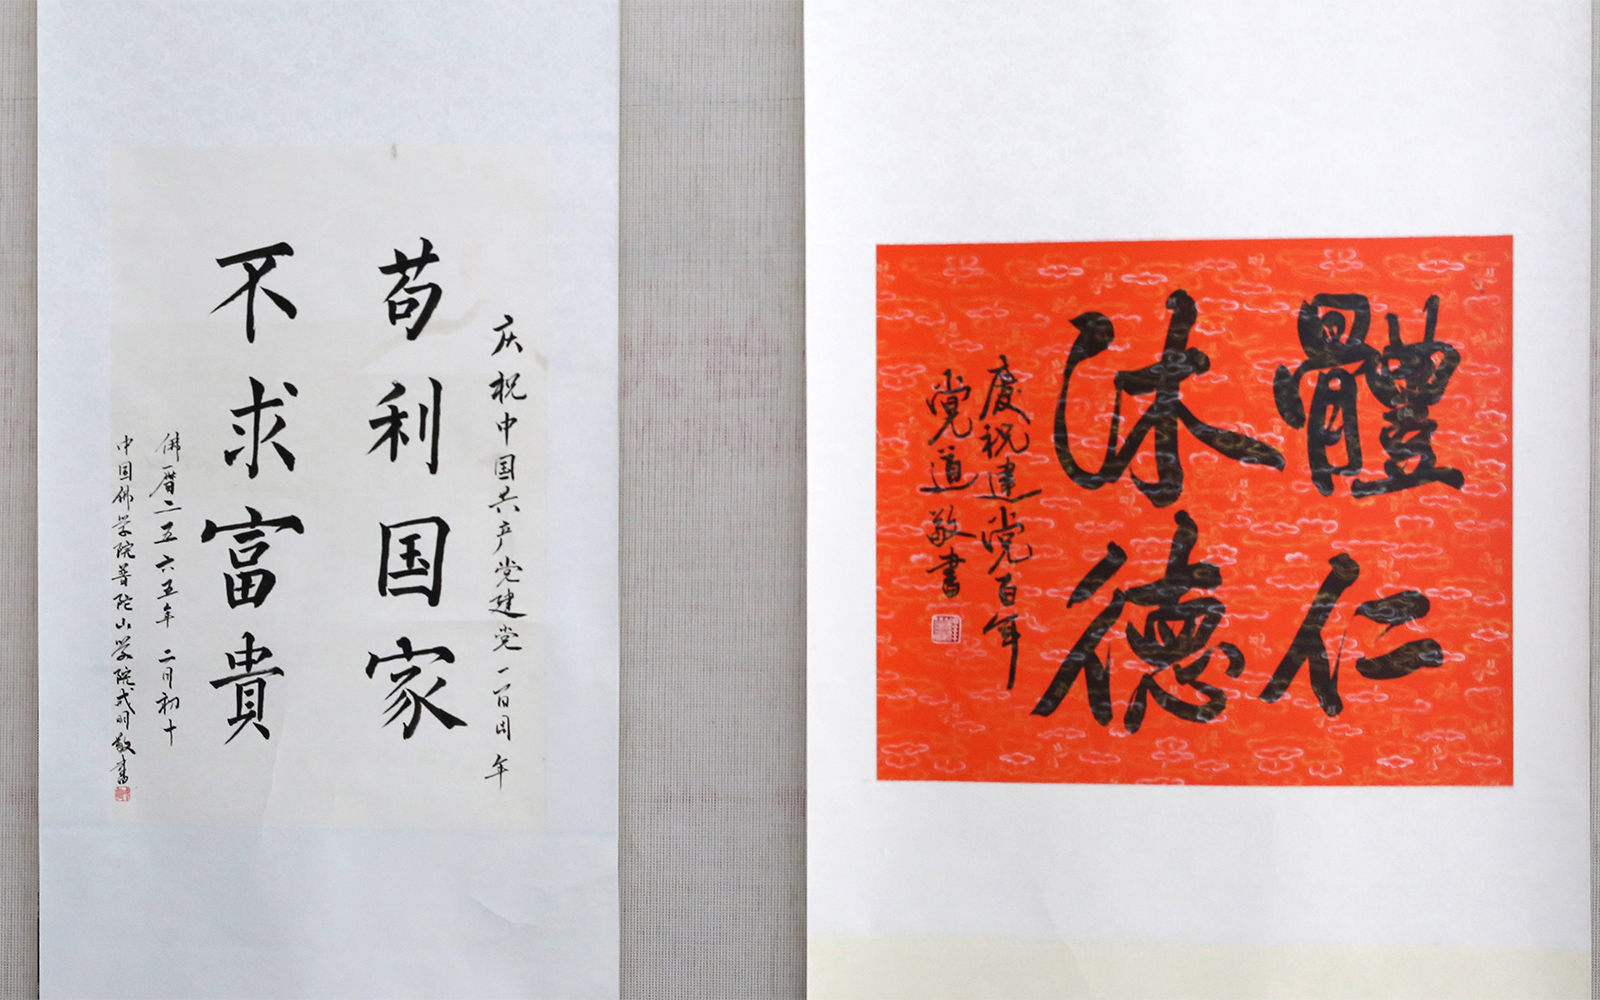 庆祝中国共产党建党一百周年
苟利国家
不求富貴
佛暦二五六五年 二月初十
中国佛学院普陀山学院式明敬書
體仁
沐德
慶祝建党百年
覺道敬書